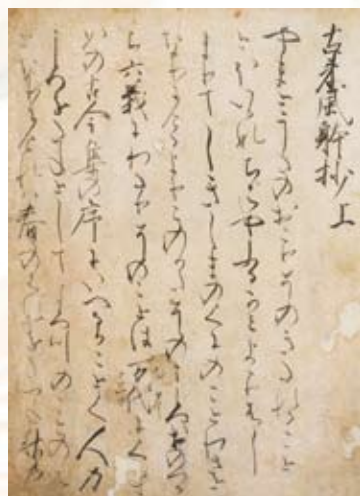 古来風躰抄上
やまとうたのおこりそのきたれること
とほいかなちはやふるかみよよりはし
まりてしきしまのくにのことわさと
なりにけるよりこのかたそのこころおのつか
ら六義にわたりそのことは万代にくちす
かの古今集の序にいへるかことく人の
こころをたねとしてよろつのことのは
となりにけれは春のはなをたつね